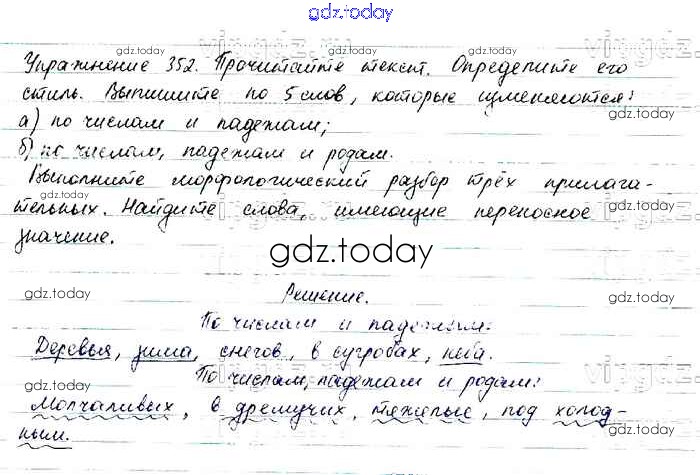 gdz.today
Упражнение 352. Прочитайте текст. Определите его
стиль. Выпишите по 5 слов, которые изменяются:
а) по числам и падежам;
б) по числам, падежам и родам.
Выполните морфологический разбор трёх прилага-
тельных. Найдите слова, имеющие переносное
значение.
gdz.today
Решение.
По числам и падежам:
Деревья, зима, снегов, в сугробах, неба.
По числам, падежам и родам:
Молчаливых, в дремучих, тяжелые, под холод-
ным.